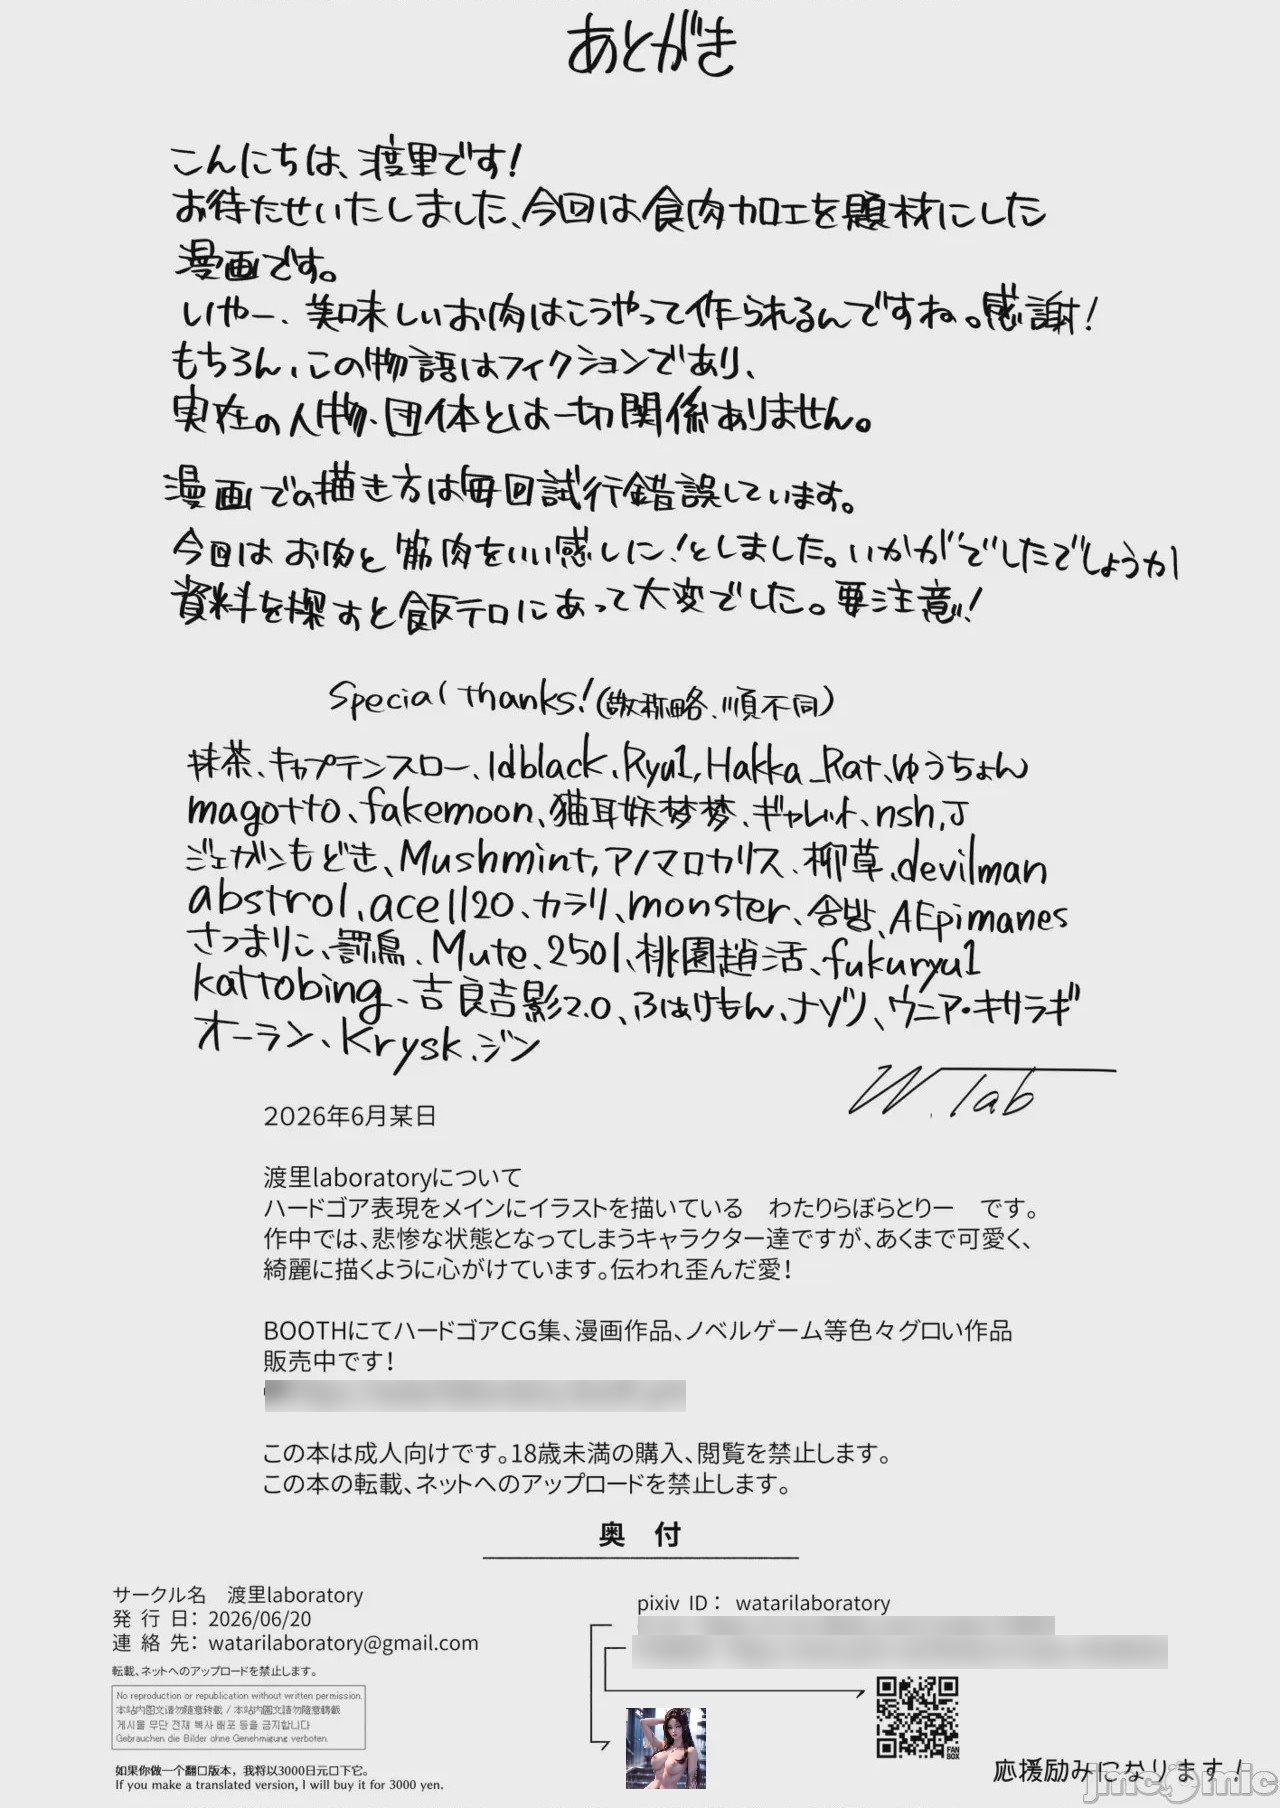 あとがき
こんにちは、渡里です!
お待たせいたしました、今回は食肉加工を題材にした
漫画です。
いやー、美味しいお肉はこうやって作られるんですね。感謝!
もちろん、この物語はフィクションであり、
実在の人物、団体とは一切関係ありません。
漫画での描き方は毎回試行錯誤しています。
今回はお肉と筋肉をいい感じに!としました。いかがでしたでしょうか
資料を探すと飯テロにあって大変でした。要注意!
Special thanks!(敬称略、順不同)
抹茶、キャプテンスロー、ldblack、Ryu1, Hakka_Rat、ゆうちょん
magotto、fakemoon、猫耳妖梦梦、ギャレット、nsh, J
ジェガンもどき、Mushmint, アノマロカリス、柳草、devilman
abstrol、ace1120、カラリ、monster、송밤、AEpimanes
さつまりこ、罰鳥、Mute、2501、桃園趙活、fukuryu1
kattobing、吉良吉影2.0、ふはけもん、ナゾソ、ウニア・キサラギ
オーラン、Krysk、ジン
W.lab
2026年6月某日
渡里laboratoryについて
ハードゴア表現をメインにイラストを描いている　わたりらぼらとりー　です。
作中では、悲惨な状態となってしまうキャラクター達ですが、あくまで可愛く、
綺麗に描くように心がけています。伝われ歪んだ愛!
BOOTHにてハードゴアCG集、漫画作品、ノベルゲーム等色々グロい作品
販売中です!
この本は成人向けです。18歳未満の購入、閲覧を禁止します。
この本の転載、ネットへのアップロードを禁止します。
奥 付
サークル名　渡里laboratory
発 行 日： 2026/06/20
連 絡 先： watarilaboratory@gmail.com
転載、ネットへのアップロードを禁止します。
No reproduction or republication without written permission.
本站内图文请勿随意转载 / 本站內圖文請勿隨意轉載
게시물 무단 전재 복사 배포 등을 금지합니다
Gebrauchen die Bilder ohne Genehmigung verboten.
如果你做一个翻口版本，我将以3000日元口下它。
If you make a translated version, I will buy it for 3000 yen.
pixiv ID： watarilaboratory
FANBOX
応援励みになります!
jmcomic